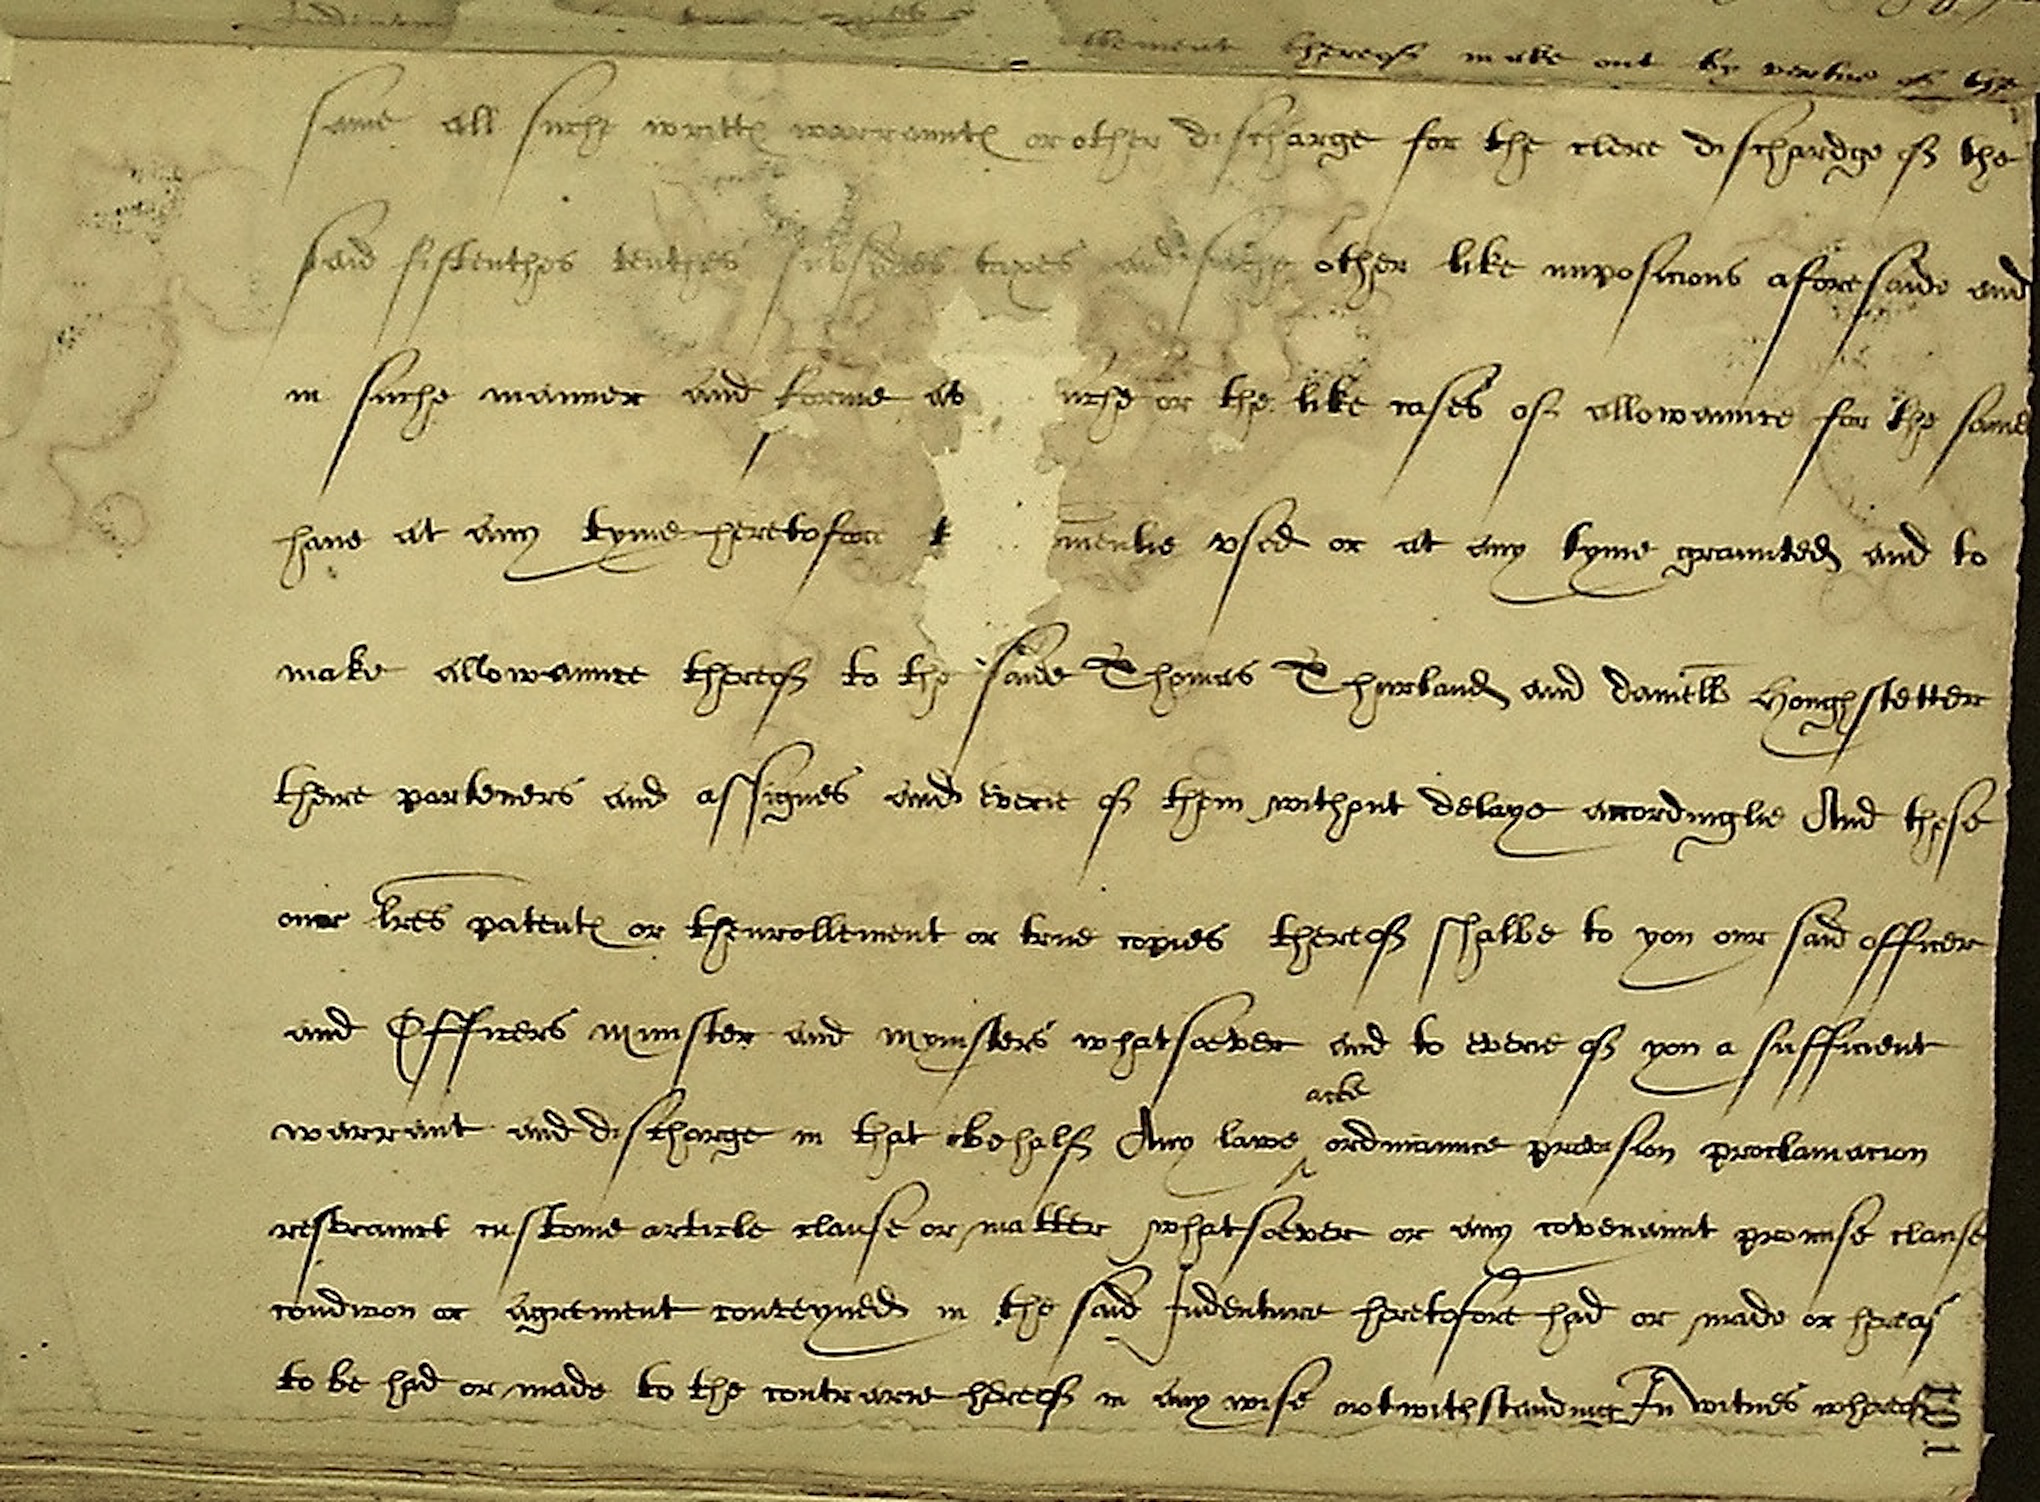 thereof make out by vertue of the
same all suche writtes warrauntes or other discharge for the clere dischardge of the
said fiftenthes tenthes subsidies taxes and suche other like imposicions aforesaide and
in suche manner and forme as uche or the like cases of allowaunce for the same
have at any tyme heretofore used or at any tyme graunted and to
make allowaunce thereof to the saide Thomas Thurland and Daniell Houghstetter
theire parteners and assignes and everie of them without delaye accordinglie And these
oure lres patentes or thenrollement or true copies thereof shalbe to you our said officer
and Officers minister and mynisters whatsoever and to everie of you a sufficient
warrant and discharge in that behalf Any lawe acte ordinaunce provision proclamacion
restrainct custome article clause or matter whatsoever or any covenaunt promise clause
condicion or agrement conteyned in the said Indenture heretofore had or made or hereaf
to be had or made to the contrarie hereof in any wise notwithstanding In witnes whereof
101